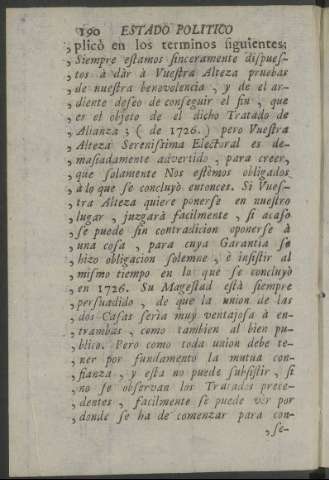 190 ESTADO POLITICO
plicò en los terminos siguientes:
, Siempre estamos sinceramente dispues-
, tos à dàr à Vuestra Alteza pruebas
, de nuestra benevolencia , y de el ar-
, diente deseo de conseguir el fin , que
, es el objeto de el dicho Tratado de
, Alianza ; ( de 1726. ) pero Vuestra
, Alteza Serenissima Electoral es de-
, masiadamente advertido , para creer,
, que solamente Nos estèmos obligados
, à lo que se concluyò entonces. Si Vues-
, tra Alteza quiere ponerse en nuestro
, lugar , juzgarà facilmente , si acaso
, se puede sin contradicion oponerse à
, una cosa , para cuya Garantia se
, hizo obligacion solemne , è insistir al
, mismo tiempo en lo que se concluyò
, en 1726. Su Magestad està siempre
, persuadido , de que la union de las
, dos Casas serìa muy ventajosa à en-
, trambas , como tambien al bien pu-
, blico. Pero como toda union debe te-
, ner por fundamento la mutua con-
, fianza , y esta no puede subsistir , si
, no se observan los Tratados prece-
, dentes , facilmente se puede vèr por
, donde se ha de comenzar para con-
, se-